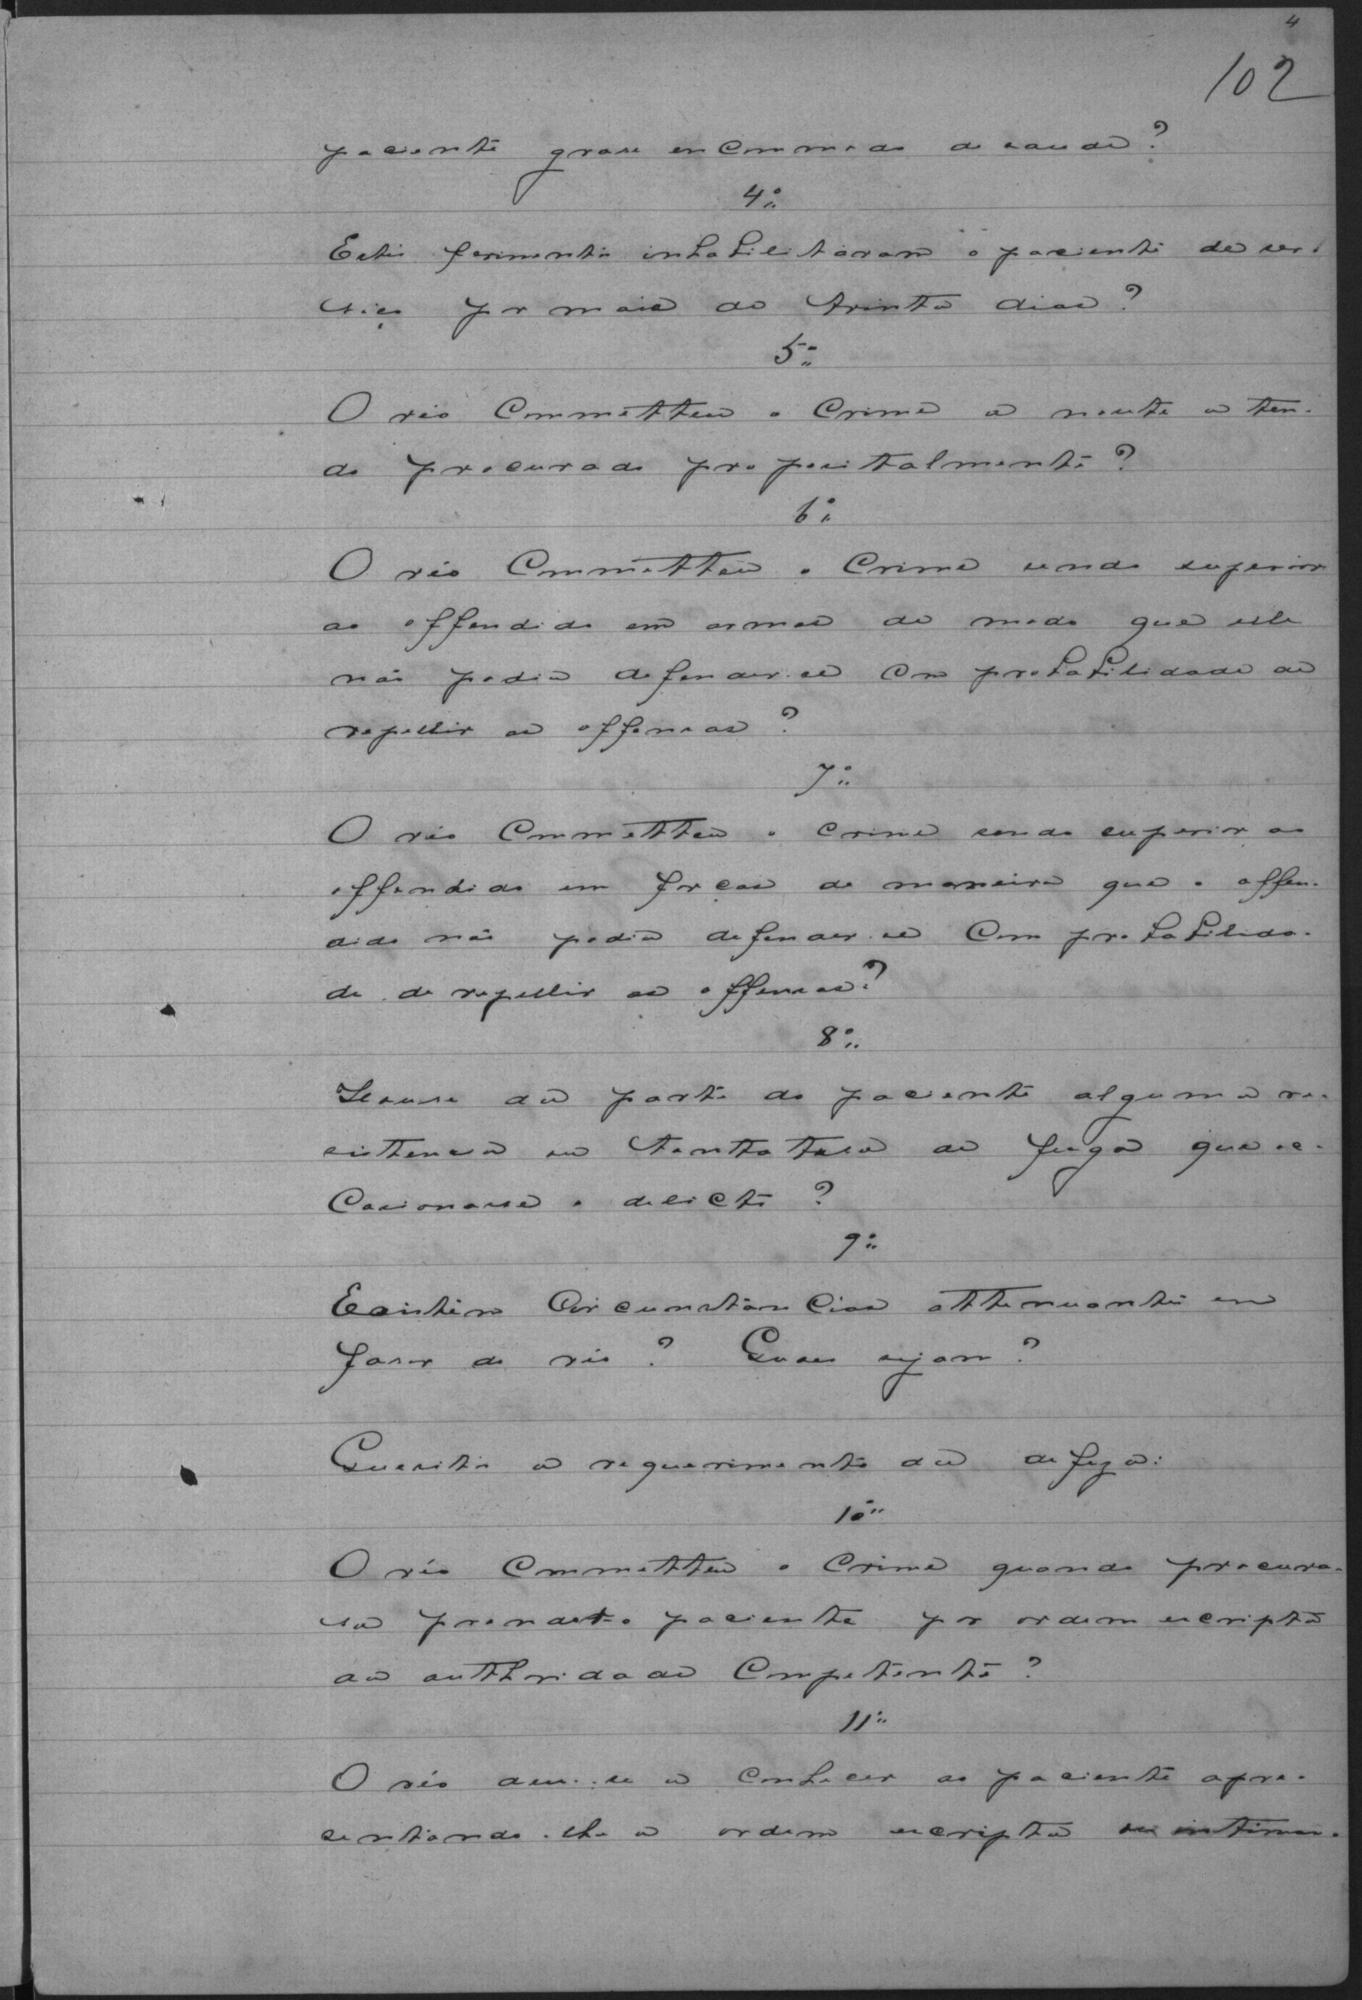 4
102
paciente grave encommodo de saude?
4º
Estes ferimentos inhabilitaram o paciente de ser-
viço por mais de trinta dias?
5º
O réo Commetteu o Crime a noute a ten-
do procurado propositalmente?
6º
O réo Commetteu o Crime sendo superior
ao offendido em armas de modo que este
não podia defender-se Com probabilidade de
repellir as offensas?
7º
O réo Commetteu o crime sendo superior ao
offendido em forças de maneira que o offen-
dido não podia defender-se Com probabilida-
de de repellir as offensas?
8º
Houve da parte do paciente alguma re-
sistencia ou tentativa de fuga que oc-
Casionasse o delicto?
9º
Existem Circumstancias attenuantes em
favor do réo? Quaes sejam?
Quesitos a requerimento da defeza:
10º
O réo Commetteu o Crime quando procura-
va prender o paciente por ordem escripta
da authoridade Competente?
11º
O réo deu-se a Conhecer ao paciente apre-
sentando-lhe a ordem escripta ou intiman-